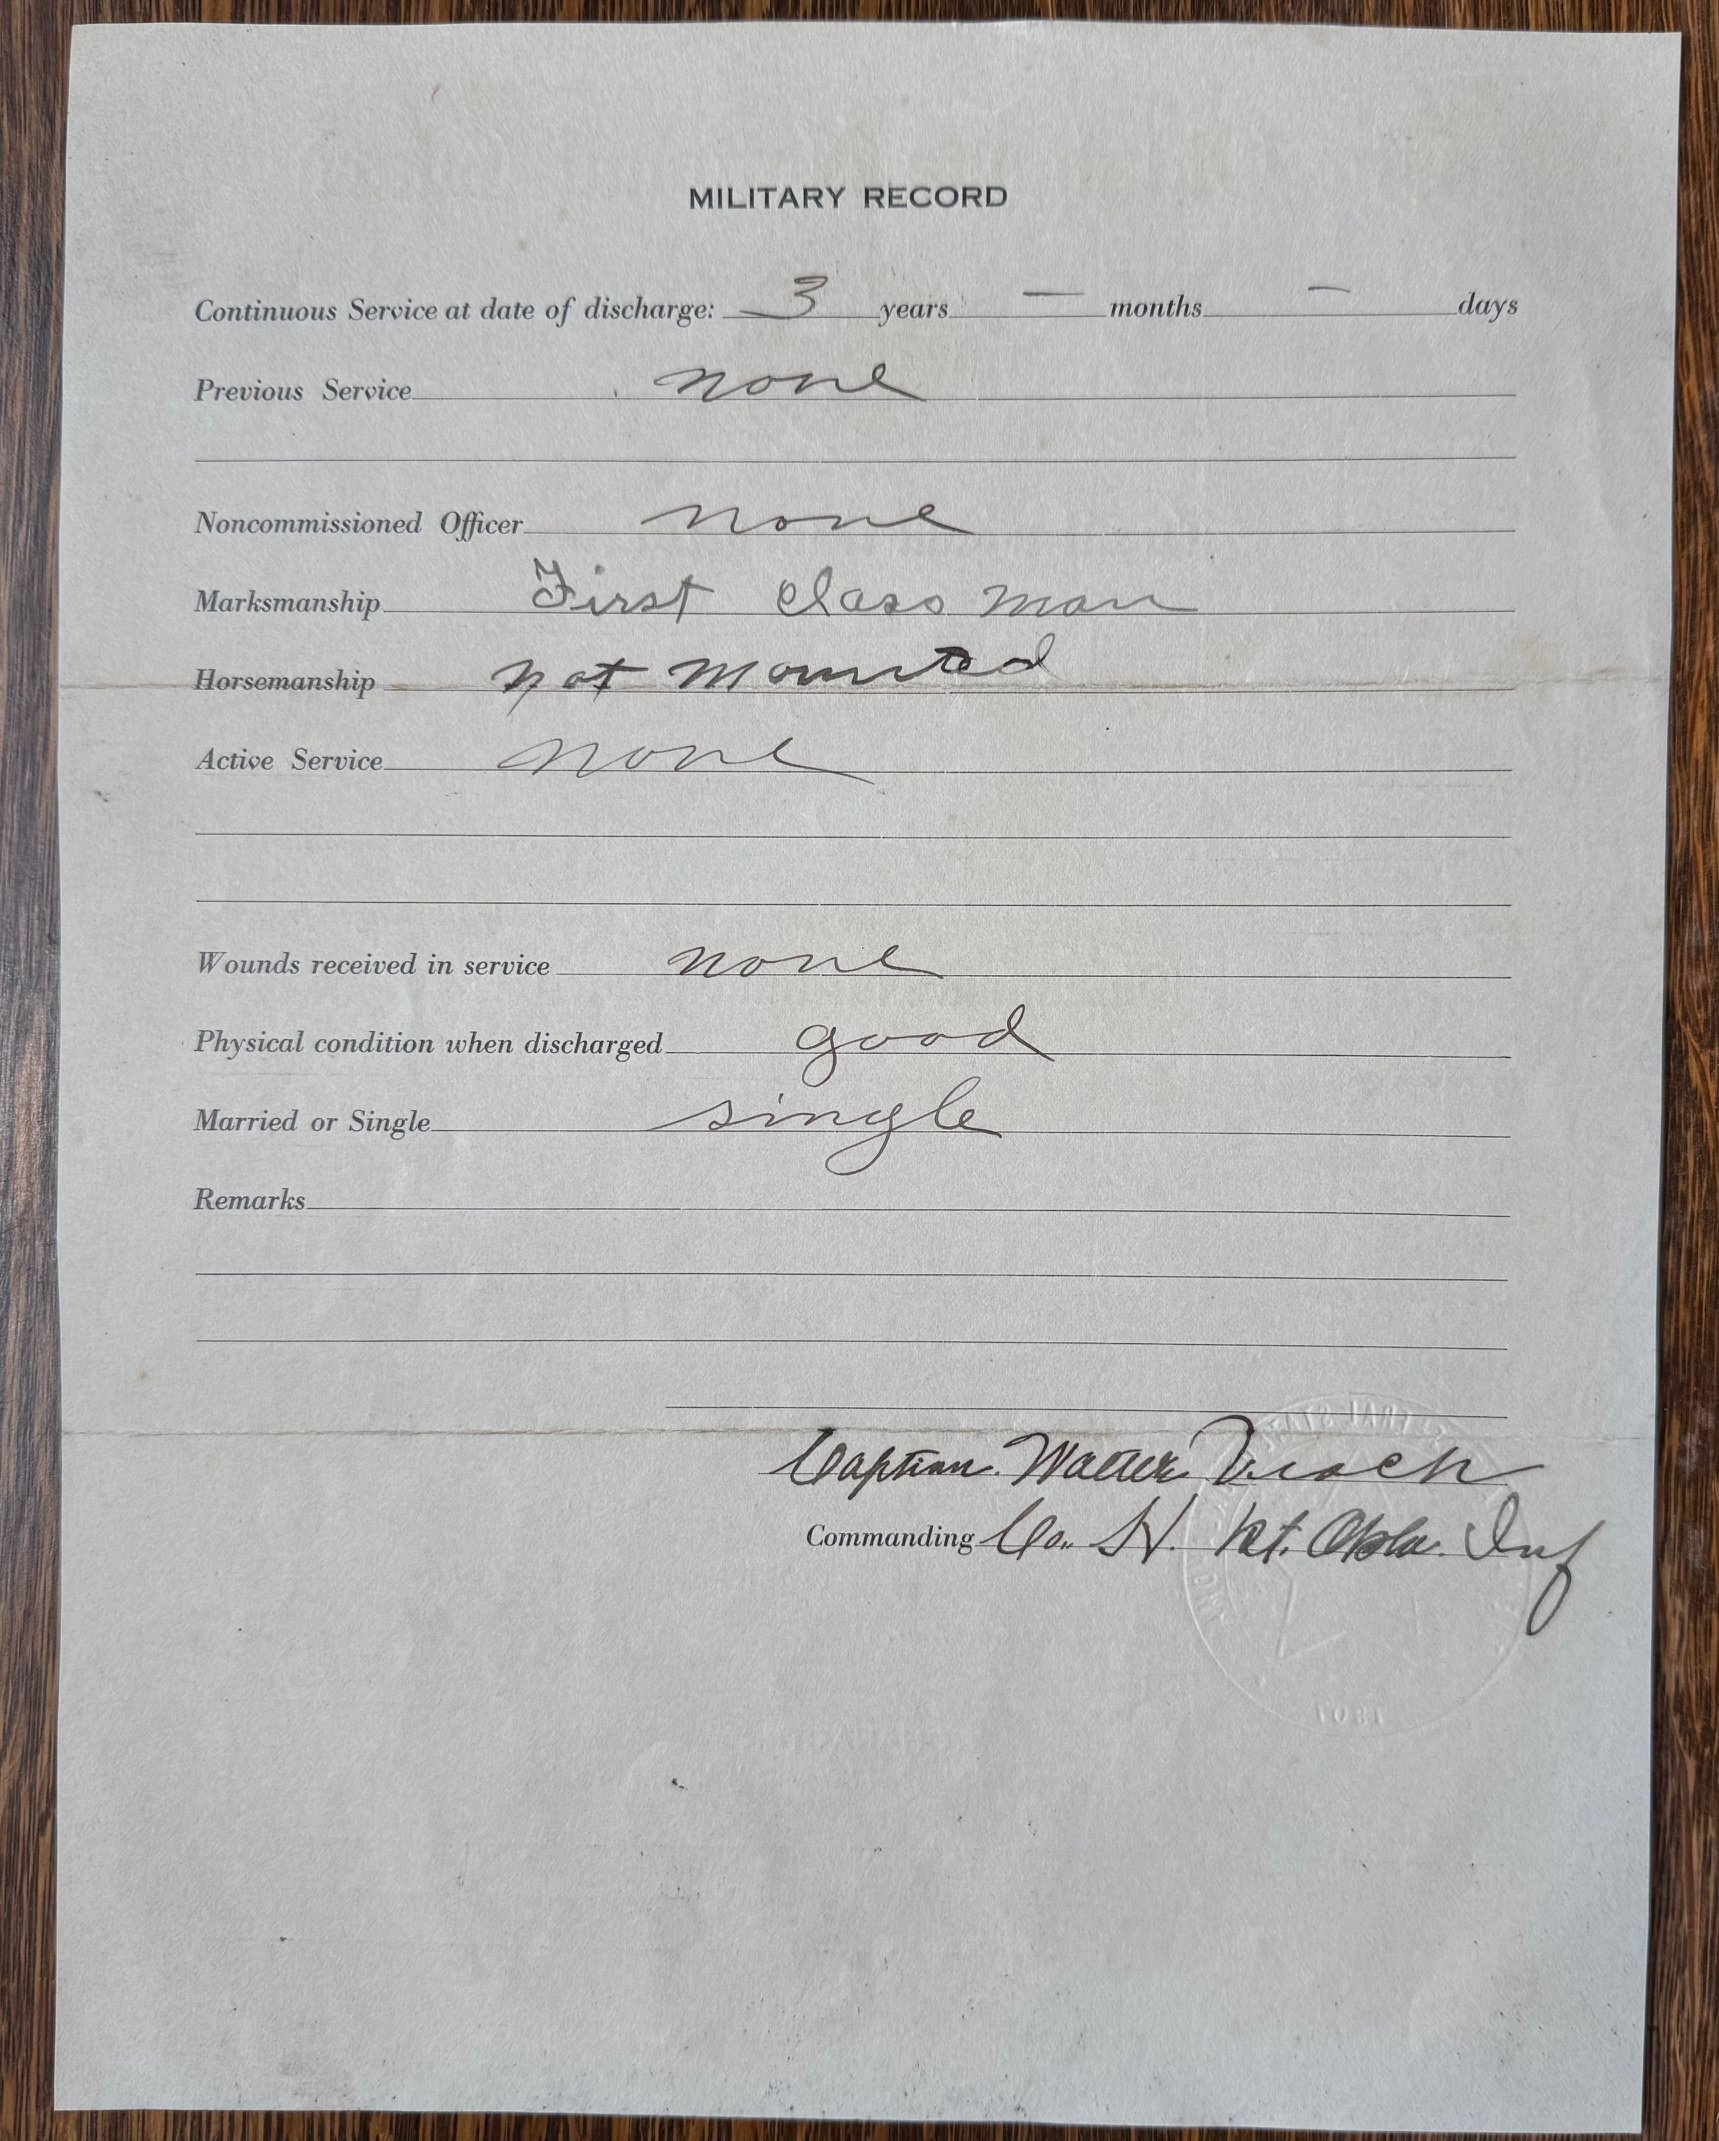 MILITARY RECORD
Continuous Service at date of discharge: 3 years — months — days
Previous Service none
Noncommissioned Officer none
Marksmanship First Class Man
Horsemanship not Mounted
Active Service none
Wounds received in service none
Physical condition when discharged good
Married or Single single
Remarks
Captian. Walter Veach
Commanding Co. H. 1st. Okla. Inf
1907